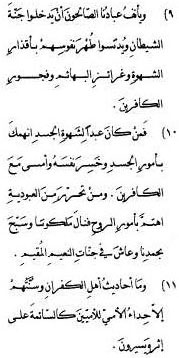 ٩) ويأنف عبادنا الصالحون أن يدخلوا جنة
الشيطان ويدنسوا طهر نفوسهم بأقذار
الشهوة وغرائز البهائم وفجور
الكافرين .
١٠) فمن كان عبدا لشهوة الجسد انهمك
بأمور الجسد وخسر نفسه وأمسى مع
الكافرين . ومن تحرر من العبودية
اهتم بأمور الروح فنال ملكوتنا وسبح
بحمدنا وعاش في جنات النعيم المقيم .
١١) وما أحاديث أهل الكفران وسنتهم
إلا حداء الأمي للأميين كالسائمة على
إثره يسيرون .